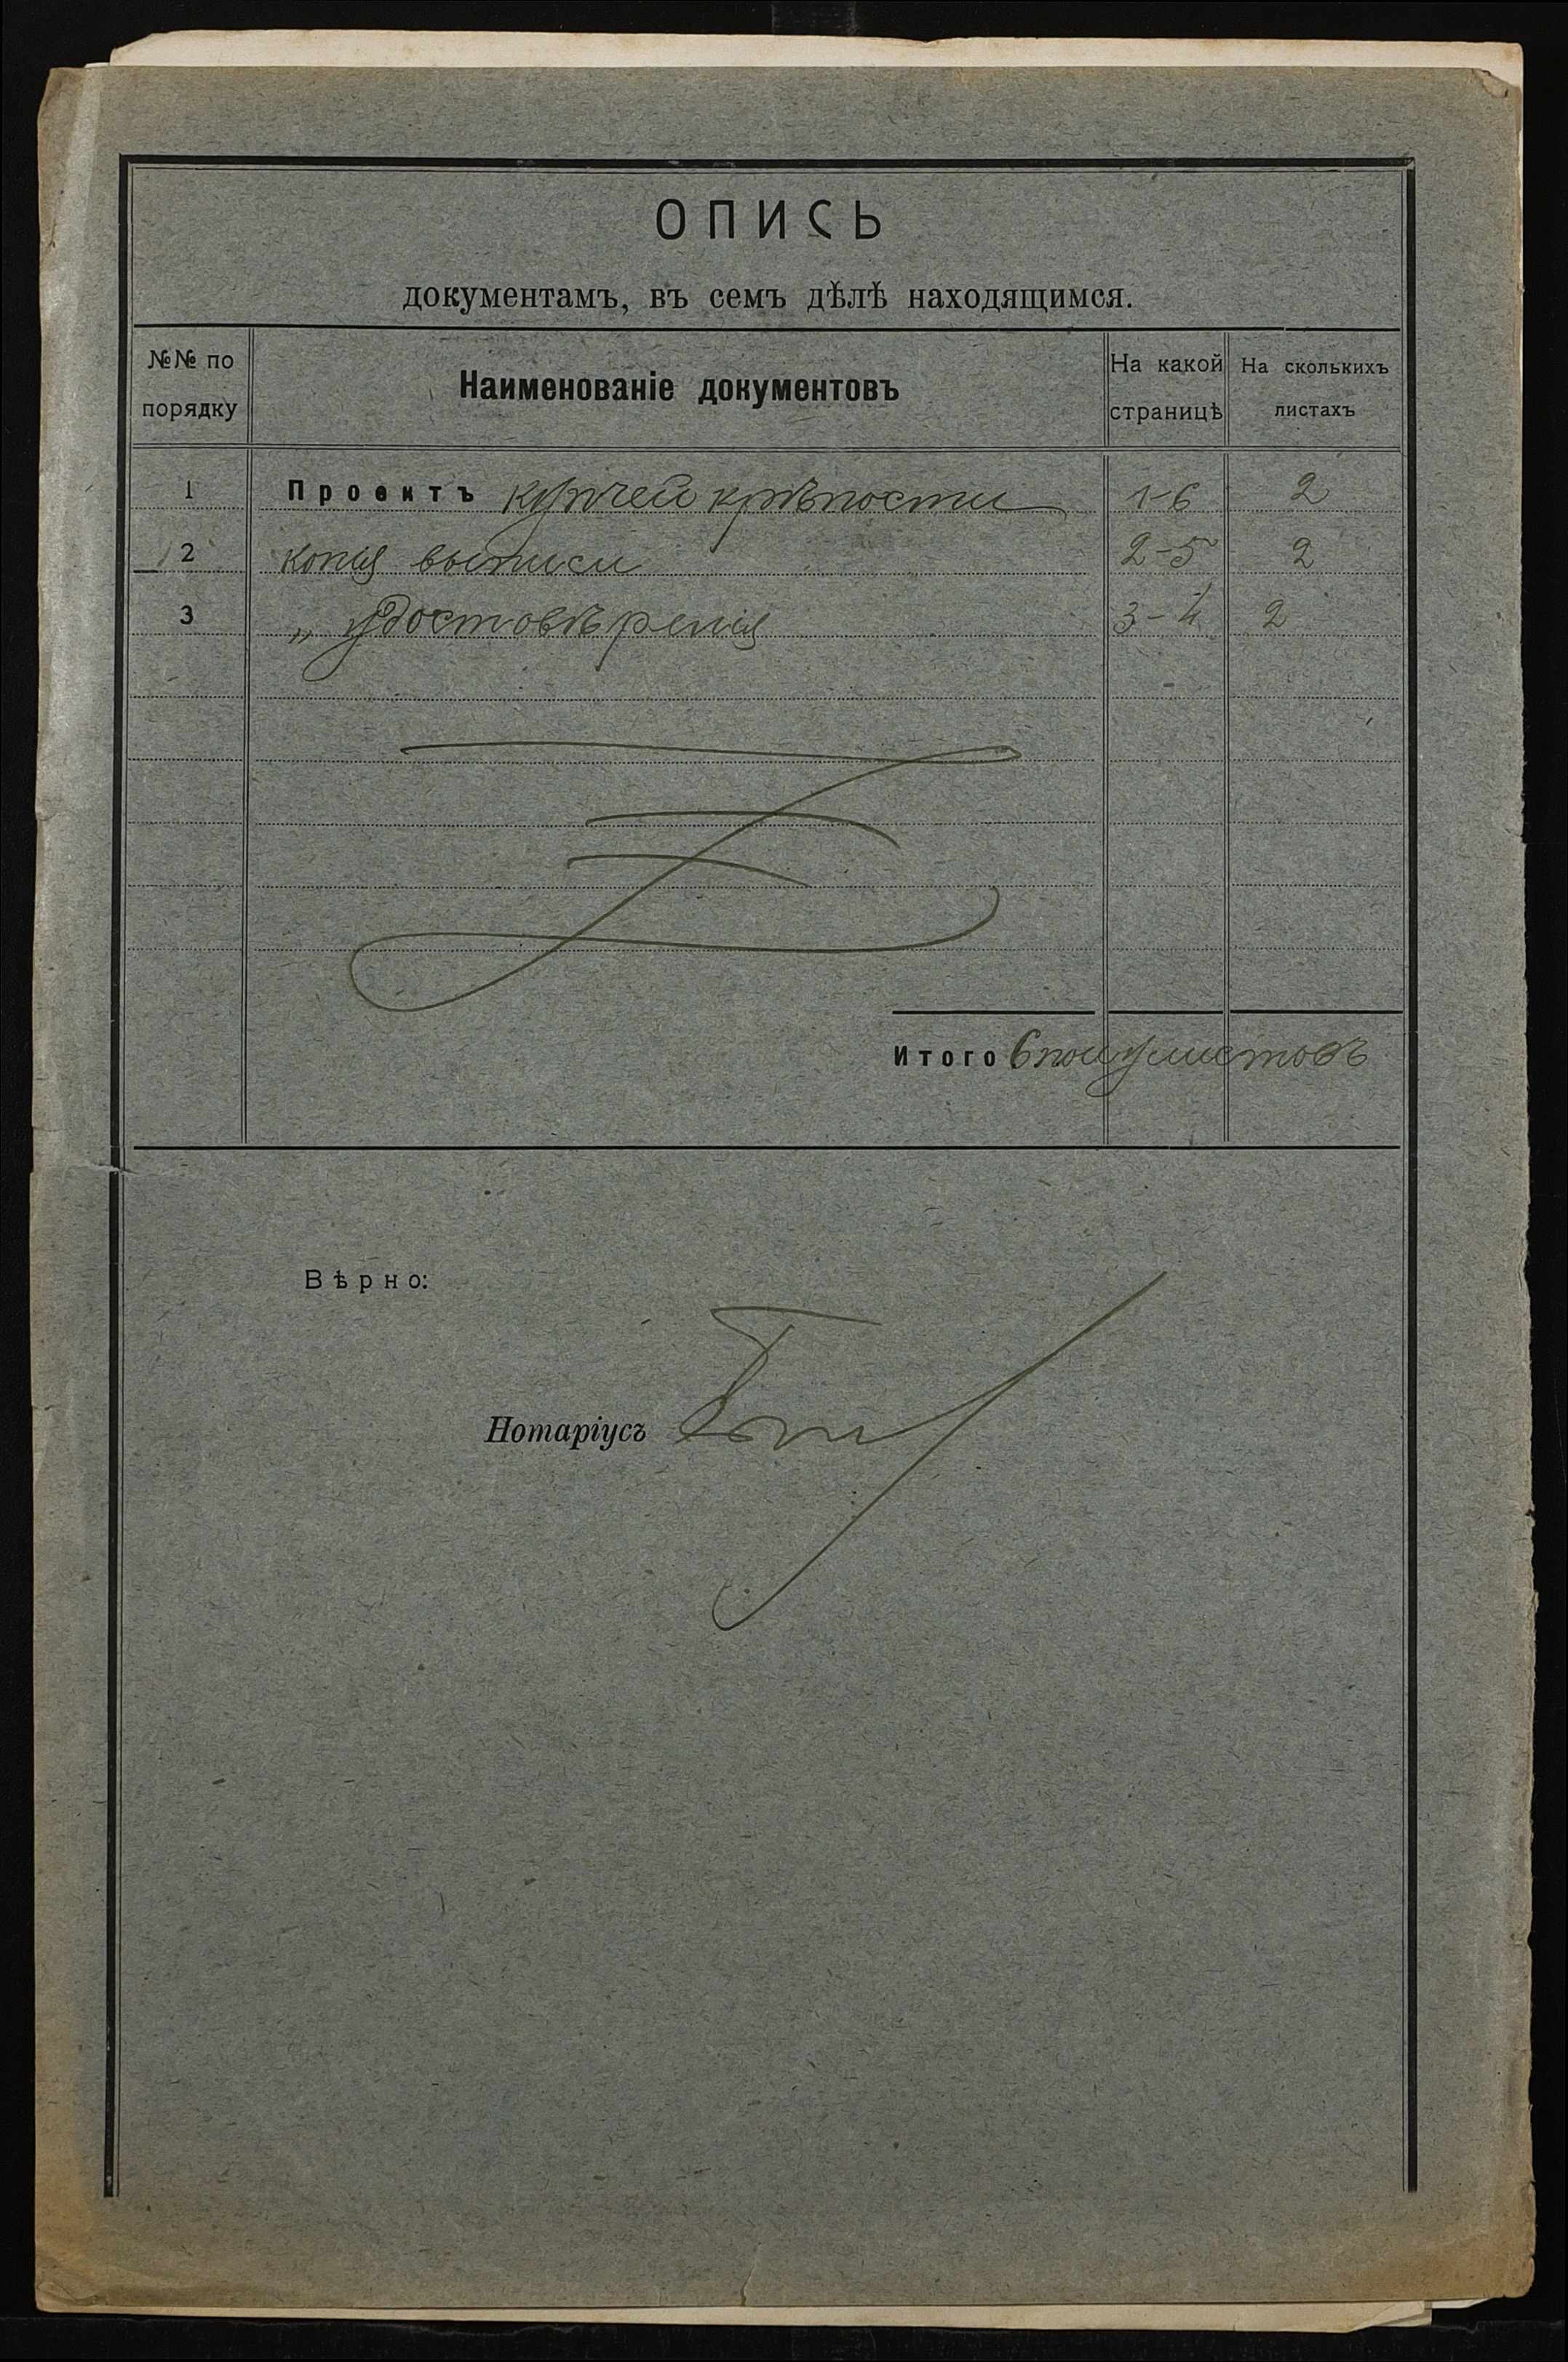 ОПИСЬ
документамъ, въ семъ дѣлѣ находящимся.
№№ по порядку Наименованіе документовъ На какой страницѣ На сколькихъ листахъ
1 Проектъ купчей крѣпости 1-6 2
2 копія выписи 2-5 2
3 „ удостовѣренія 3-4 2
Итого 6 полулистовъ
Вѣрно:
Нотаріусъ